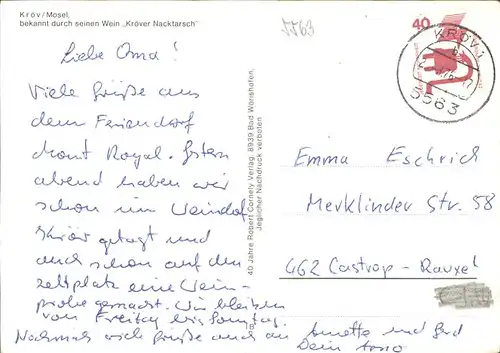 Kröv/Mosel,
bekannt durch seinen Wein „Kröver Nacktarsch"
5563
40
KRÖV 1
5563
Liebe Oma!
Viele Grüße aus
dem Feriendorf
Mont Royal. Gestern
abend haben wir
schon im Weindorf
Kröv getagt und
auch schon auf dem
Zeltplatz eine Wein-
probe gemacht. Wir bleiben
von Freitag bis Sonntag.
Nochmals viele Grüße auch an Annette und Gerd
Dein
40 Jahre Robert Cornely Verlag, 8939 Bad Wörishofen,
Jeglicher Nachdruck verboten
Emma Eschrich
Merklinder Str. 58
462 Castrop-Rauxel